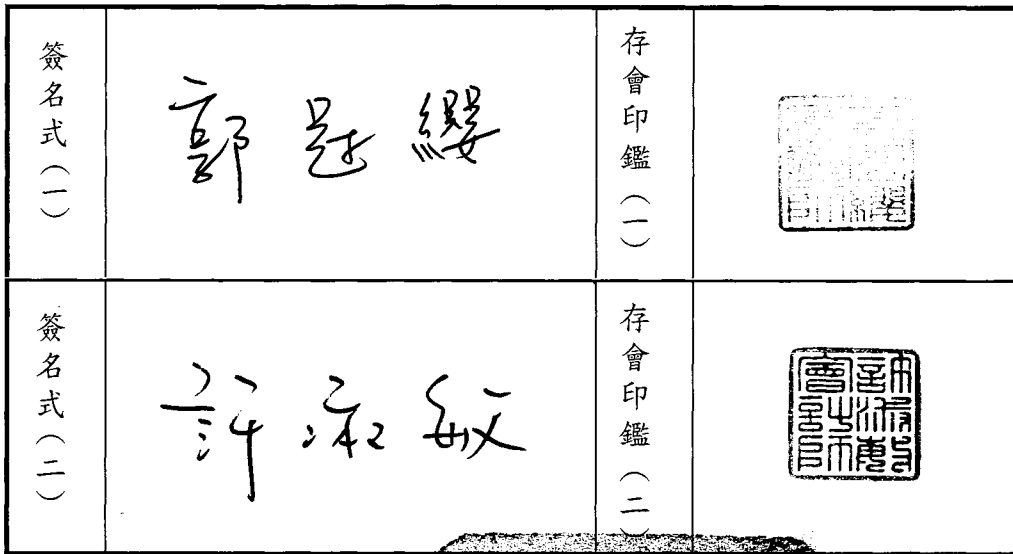 簽名式（一）
郭冠纓
存會印鑑（一）
簽名式（二）
許淑敏
存會印鑑（二）